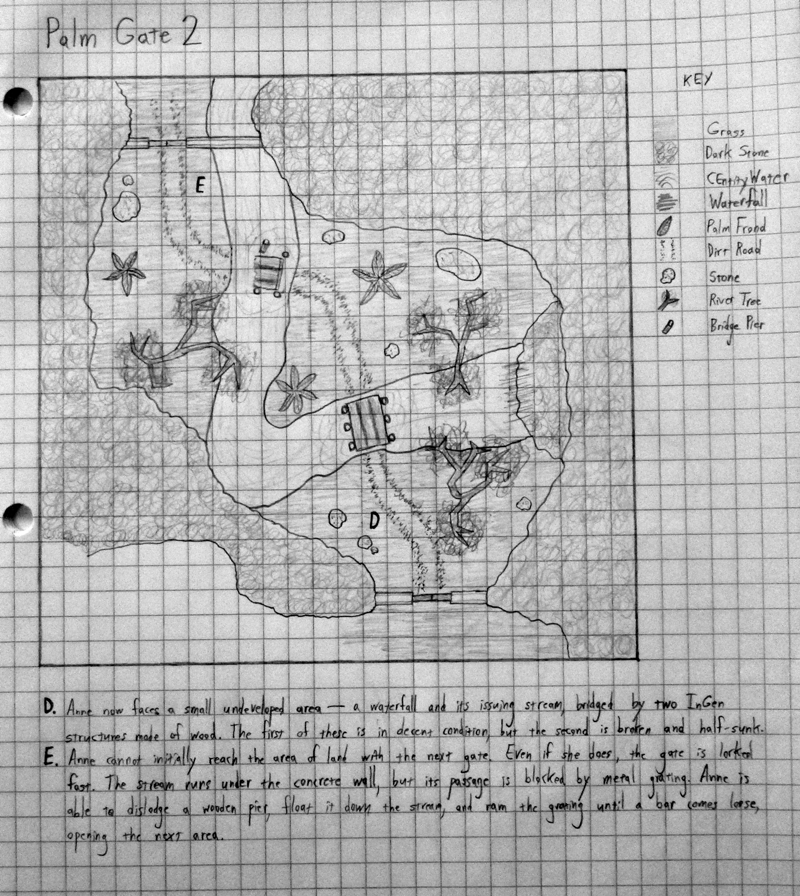 Palm Gate 2
KEY
Grass
Dark Stone
CEntity Water
Waterfall
Palm Frond
Dirt Road
Stone
River Tree
Bridge Pier
E
D
D. Anne now faces a small undeveloped area — a waterfall and its issuing stream, bridged by two InGen
structures made of wood. The first of these is in decent condition, but the second is broken and half-sunk.
E. Anne cannot initially reach the area of land with the next gate. Even if she does, the gate is locked
fast. The stream runs under the concrete wall, but its passage is blocked by metal grating. Anne is
able to dislodge a wooden pier, float it down the stream, and ram the graning until a bar comes loose,
opening the next area.